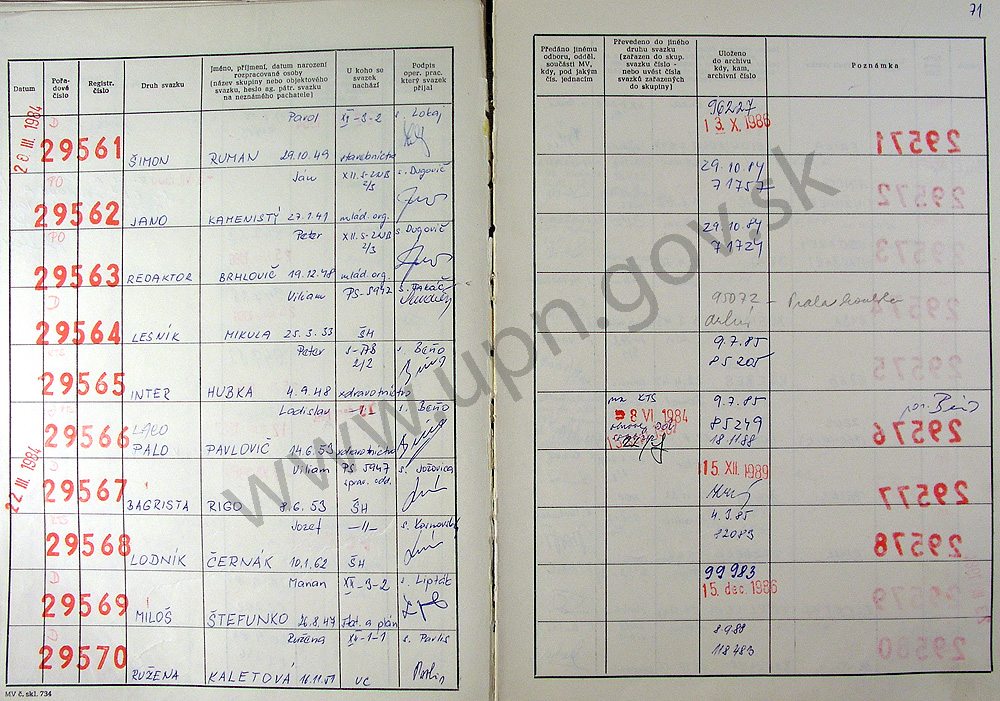 71
Datum
Pořa-
dové
číslo
Registr.
číslo
Druh svazku
Jméno, příjmení, datum narození
rozpracované osoby
(název skupiny nebo objektového
svazku, heslo ag. pátr. svazku
na neznámého pachatele)
U koho se
svazek
nachází
Podpis
oper. prac.
který svazek
přijal
Předáno jinému
odboru, odděl.
součásti MV,
kdy, pod jakým
čís. jednacím
Převedeno do jiného
druhu svazku
(zařazen do skup.
svazku číslo -
nebo uvést čísla
svazků zařazených
do skupiny)
Uloženo
do archivu
kdy, kam,
archivní číslo
Poznámka
20 III. 1984
D
29561
ŠIMON
Pavol
RUMAN 29.10.49
XI-3-2
stavebníctvo
s. Lokaj
96227
13. X. 1986
29562
JANO
Ján
KAMENISTÝ 27.1.41
XII.S-ZNB
2/3
mlád. org.
s. Dugovič
29.10.84
71757
29563
REDAKTOR
Peter
BRHLOVIČ 19.12.48
XII.S-ZNB
2/3
mlád. org.
s. Dugovič
29.10.84
71724
D
29564
LESNÍK
Viliam
MIKULA 25.3.53
PS-5947
ŠH
95072
29565
INTER
Peter
HUBKA 4.9.48
2/2
zdravotníctvo
s. Beňo
9.7.85
85205
29566
LACO
PALO
Ladislav
PAVLOVIČ 14.6.53
-11-
zdravotníctvo
s. Beňo
8 VI. 1984
9.7.85
85249
18.11.88
22 III. 1984
D
29567
BAGRISTA
Viliam
RIGO 8.6.53
PS 5947
ŠH
s. Jožovica
15. XII. 1989
29568
LODNÍK
Jozef
ČERNÁK 10.1.62
-11-
ŠH
4.3.85
82083
D
29569
MILOŠ
Marian
ŠTEFUNKO 26.8.47
XI-3-2
štat. a plán
s. Lipták
99983
15. dec. 1986
29570
RUŽENA
Ružena
KALETOVÁ 16.11.51
XI-1-1
VC
s. Pavlis
118483
29571
29572
29573
29574
29575
29576
29577
29578
29579
29580
MV č. skl. 734
www.upn.gov.sk